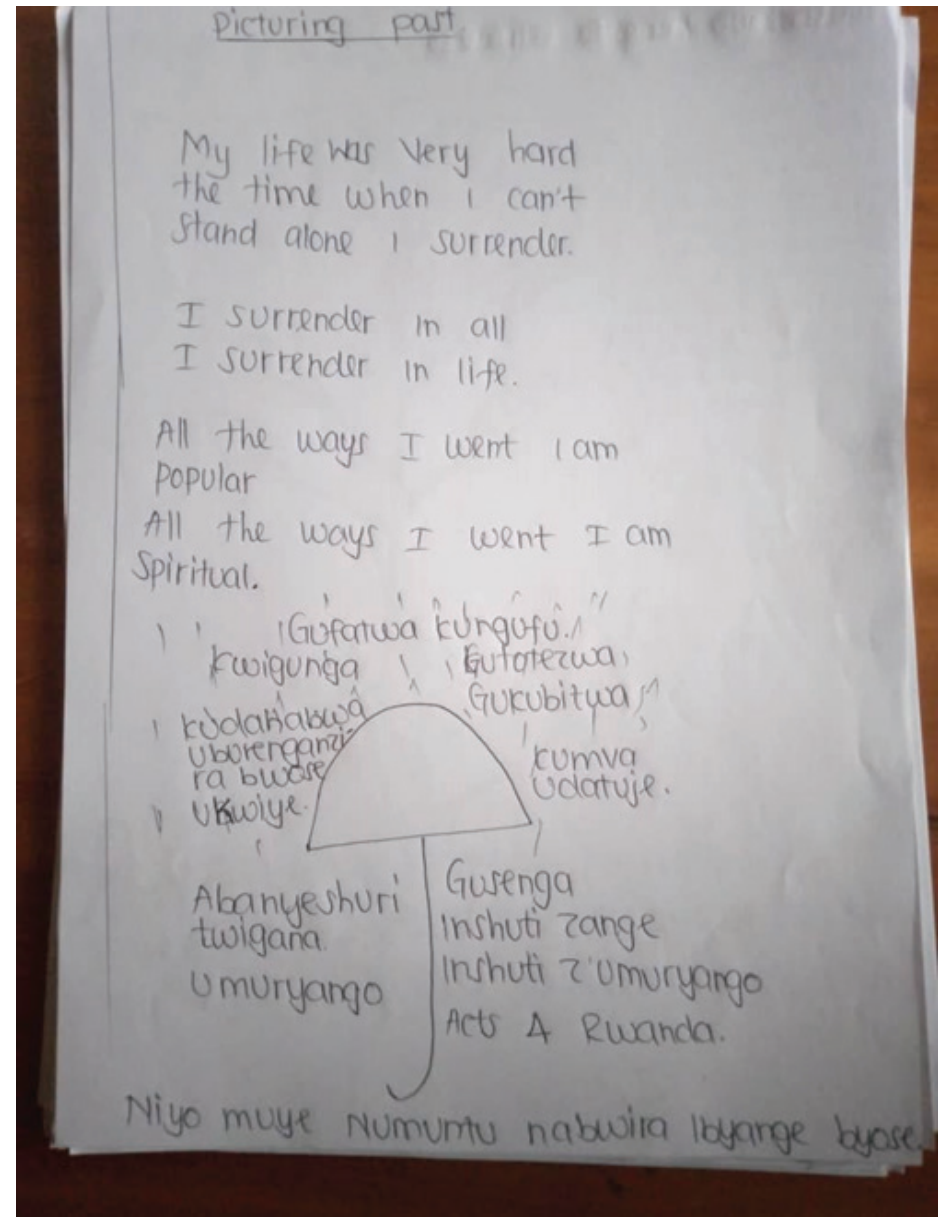 Picturing past
My life was Very hard
the time when I can't
Stand alone I surrender.
I surrender in all
I surrender in life.
All the ways I went I am
popular
All the ways I went I am
Spiritual.
Gufatwa kungufu.
Kwigunga
Gutotezwa
Gukubitwa
kudahabwa
uburenganzi-
ra bwose
ukwiye.
kumva
udatuje.
Abanyeshuri
twigana
Umuryango
Gusenga
Inshuti zange
Inshuti z'umuryango
Acts 4 Rwanda.
Niyo muye Numuntu nabwira Ibyange byose.